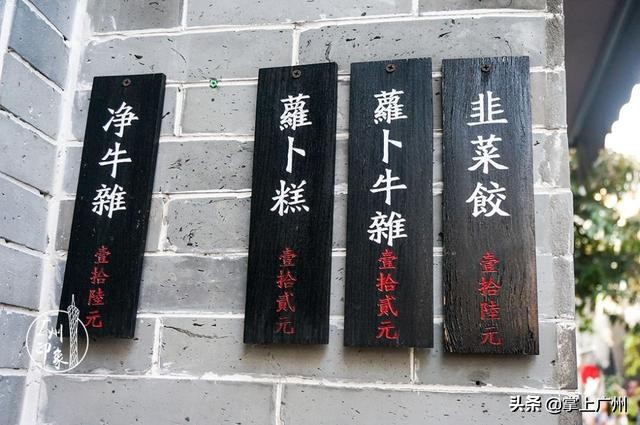 净牛雜
壹拾陸元
蘿卜糕
壹拾貳元
蘿卜牛雜
壹拾貳元
韭菜餃
壹拾陸元
广州印象
头条 @掌上广州